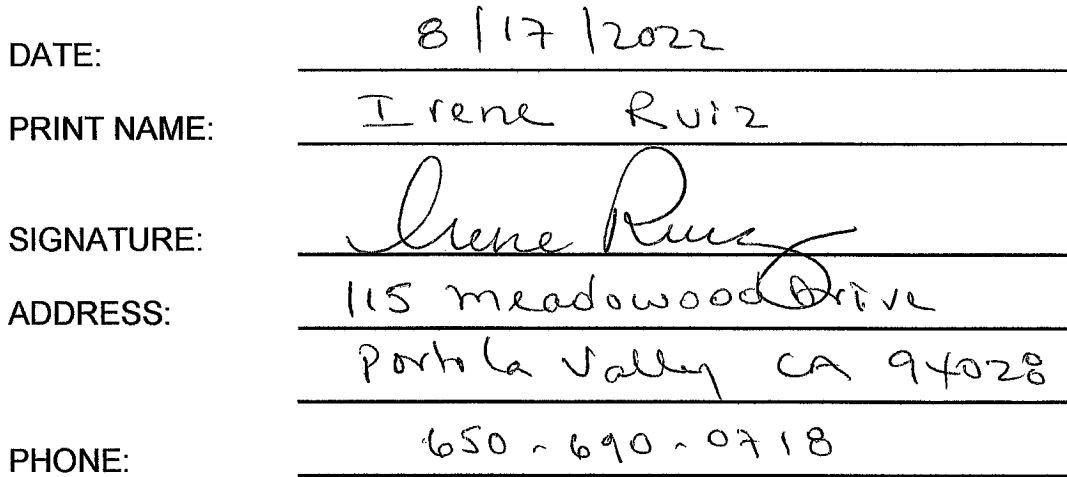 DATE: 8/17/2022
PRINT NAME: Irene Ruiz
SIGNATURE: Irene Ruiz
ADDRESS: 115 meadowood Drive
Portola Valley CA 94028
PHONE: 650-690-0718